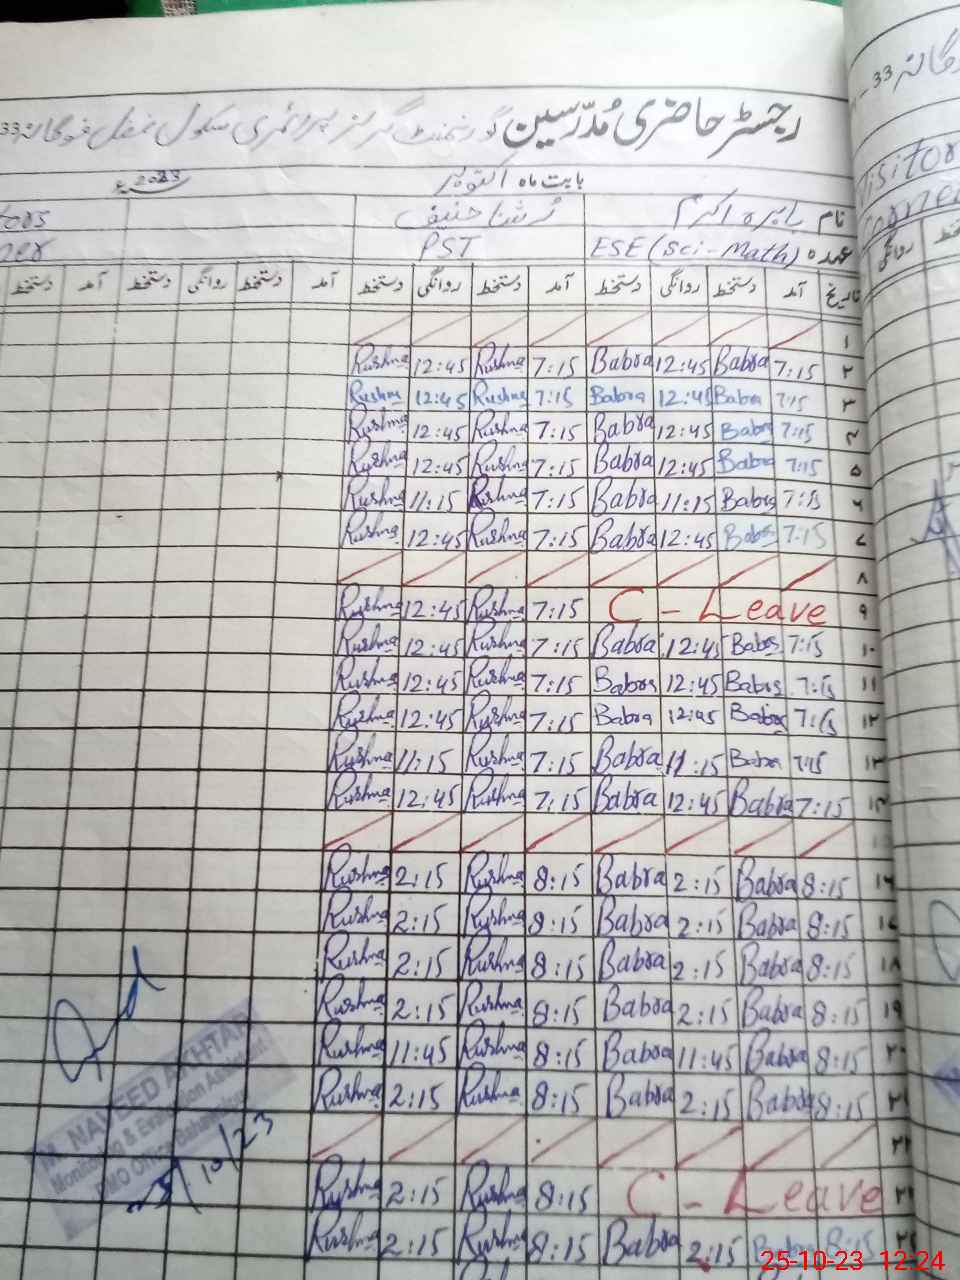 رجسٹر حاضری مُدرّسین گورنمنٹ گرلز پرائمری سکول
بابت ماہ اکتوبر 2023ء
نام بابرہ اکرم رُشنا حنیف
عہدہ ESE (Sci-Math) PST
تاریخ آمد دستخط روانگی دستخط آمد دستخط روانگی دستخط آمد دستخط روانگی دستخط آمد دستخط
۱
۲ 7:15 Babra 12:45 Babra 7:15 Rushna 12:45 Rushna
۳ 7:15 Babra 12:45 Babra 7:15 Rushna 12:45 Rushna
۴ 7:15 Babra 12:45 Babra 7:15 Rushna 12:45 Rushna
۵ 7:15 Babra 12:45 Babra 7:15 Rushna 12:45 Rushna
۶ 7:15 Babra 11:15 Babra 7:15 Rushna 11:15 Rushna
۷ 7:15 Babra 12:45 Babra 7:15 Rushna 12:45 Rushna
۸
۹ C - Leave 7:15 Rushna 12:45 Rushna
۱۰ 7:15 Babra 12:45 Babra 7:15 Rushna 12:45 Rushna
۱۱ 7:15 Babra 12:45 Babra 7:15 Rushna 12:45 Rushna
۱۲ 7:15 Babra 12:45 Babra 7:15 Rushna 12:45 Rushna
۱۳ 7:15 Babra 11:15 Babra 7:15 Rushna 11:15 Rushna
۱۴ 7:15 Babra 12:45 Babra 7:15 Rushna 12:45 Rushna
۱۶ 8:15 Babra 2:15 Babra 8:15 Rushna 2:15 Rushna
۱۷ 8:15 Babra 2:15 Babra 8:15 Rushna 2:15 Rushna
۱۸ 8:15 Babra 2:15 Babra 8:15 Rushna 2:15 Rushna
۱۹ 8:15 Babra 2:15 Babra 8:15 Rushna 2:15 Rushna
۲۰ 8:15 Babra 11:45 Babra 8:15 Rushna 11:45 Rushna
۲۱ 8:15 Babra 2:15 Babra 8:15 Rushna 2:15 Rushna
۲۲
C - Leave 8:15 Rushna 2:15 Rushna
8:15 Babra 2:15 Babra 8:15 Rushna 2:15 Rushna
M. NAVEED AKHTAR
Monitoring & Evaluation Assistant
DMO Office Bahawalpur
10/23
Visitor
Corner
روانگی
25-10-23 12:24